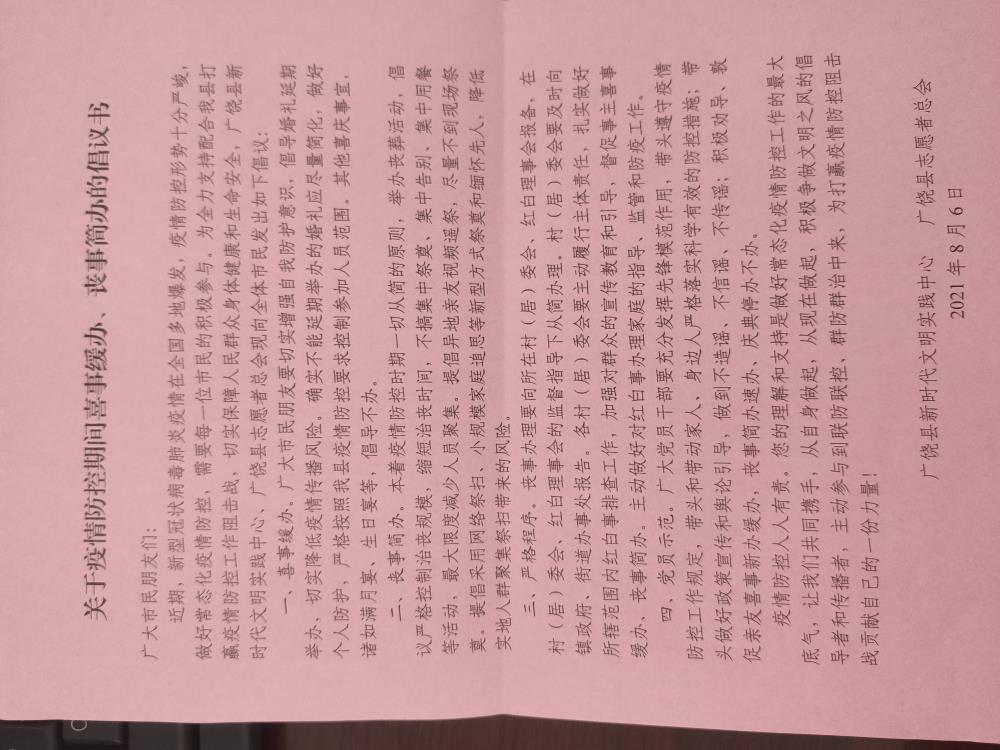 关于疫情防控期间喜事缓办、丧事简办的倡议书
广大市民朋友们：
近期，新型冠状病毒肺炎疫情在全国多地爆发，疫情防控形势十分严峻，
做好常态化疫情防控，需要每一位市民的积极参与。为全力支持配合我县打
赢疫情防控工作阻击战，切实保障人民群众身体健康和生命安全，广饶县新
时代文明实践中心、广饶县志愿者总会现向全体市民发出如下倡议：
一、喜事缓办。广大市民朋友要切实增强自我防护意识，倡导婚礼延期
举办，切实降低疫情传播风险。确实不能延期举办的婚礼应尽量简化，做好
个人防护，严格按照我县疫情防控要求控制参加人员范围。其他喜庆事宜，
诸如满月宴、生日宴等，倡导不办。
二、丧事简办。本着疫情防控时期一切从简的原则，举办丧葬活动，倡
议严格控制治丧规模，缩短治丧时间，不搞集中祭奠、集中告别、集中用餐
等活动，最大限度减少人员聚集。提倡异地亲友视频遥祭，尽量不到现场祭
奠。提倡采用网络祭扫、小规模家庭追思等新型方式祭奠和缅怀先人，降低
实地人群聚集祭扫带来的风险。
三、严格程序。丧事办理要向所在村（居）委会、红白理事会报备，在
村（居）委会、红白理事会的监督指导下从简办理。村（居）委会要及时向
镇政府、街道办事处报告。各村（居）委会要主动履行主体责任，扎实做好
所辖范围内红白事排查工作，加强对群众的宣传教育和引导，督促事主喜事
缓办、丧事简办。主动做好对红白事办理家庭的指导、监管和防疫工作。
四、党员示范。广大党员干部要充分发挥先锋模范作用，带头遵守疫情
防控工作规定，带头和带动家人、身边人严格落实科学有效的防控措施；带
头做好政策宣传和舆论引导，做到不造谣、不信谣、不传谣；积极劝导、敦
促亲友喜事新办缓办，丧事简办速办、庆典停办不办。
疫情防控人人有责。您的理解和支持是做好常态化疫情防控工作的最大
底气，让我们共同携手，从自身做起，从现在做起，积极争做文明之风的倡
导者和传播者，主动参与到联防联控、群防群治中来，为打赢疫情防控阻击
战贡献自己的一份力量！
广饶县新时代文明实践中心 广饶县志愿者总会
2021年8月6日